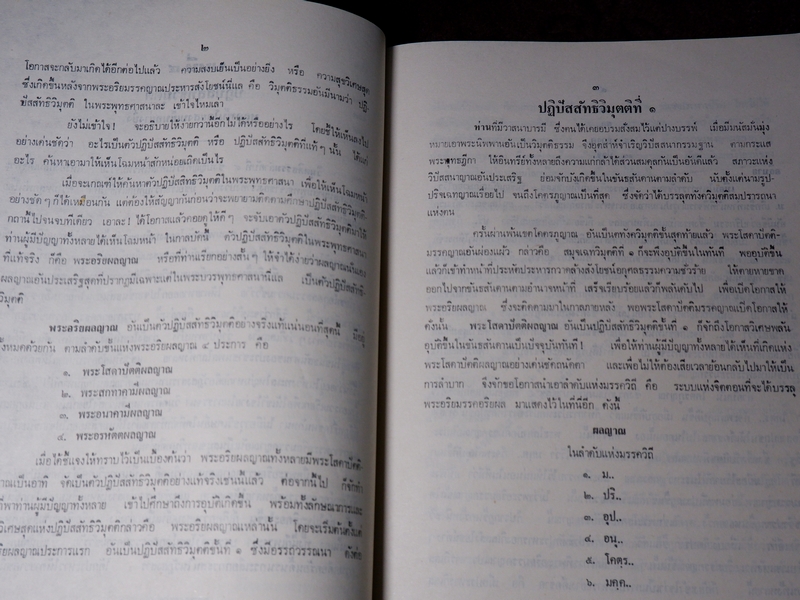 ๒
โอกาสจะกลับมาเกิดได้อีกต่อไปแล้ว ความสงบเย็นเป็นอย่างยิ่ง หรือ ความสุขวิเศษสุด
ซึ่งเกิดขึ้นหลังจากพระอริยมรรคญาณประหารสังโยชน์นี่แล คือ วิมุตติธรรมอันมีนามว่า ปฏิ-
ปัสสัทธิวิมุตติ ในพระพุทธศาสนาละ เข้าใจไหมเล่า
ยังไม่เข้าใจ! จะอธิบายให้ง่ายกว่านี้อีกไม่ได้หรืออย่างไร โดยชี้ให้เห็นลงไป
อย่างเด่นชัดว่า อะไรเป็นตัวปฏิปัสสัทธิวิมุตติ หรือ ปฏิปัสสัทธิวิมุตติที่แท้ๆ นั้น ได้แก่
อะไร ค้นหาเอามาให้เห็นโฉมหน้าสักหน่อยเถิดเป็นไร
เมื่อจะเกณฑ์ให้ค้นหาตัวปฏิปัสสัทธิวิมุตติในพระพุทธศาสนา เพื่อให้เห็นโฉมหน้า
อย่างชัดๆ ก็ได้เหมือนกัน แต่ต้องให้สัญญากันก่อนว่าจะพยายามติดตามศึกษาปฏิปัสสัทธิวิมุตติ-
กถานี้ไปจนจบทีเดียว เอาละ! ได้โอกาสแล้วคอยดูให้ดีๆ จะจับเอาตัวปฏิปัสสัทธิวิมุตติมาให้
ท่านผู้มีปัญญาทั้งหลายได้เห็นโฉมหน้า ในกาลบัดนี้ ตัวปฏิปัสสัทธิวิมุตติในพระพุทธศาสนา
ที่แท้จริง ก็คือ พระอริยผลญาณ หรือที่ท่านเรียกอย่างสั้นๆ ให้จำได้ง่ายว่าผลญาณนั่นเอง
ผลญาณอันประเสริฐสุดที่ปรากฏมีเฉพาะแต่ในพระบวรพุทธศาสนานี่แล เป็นตัวปฏิปัสสัทธิ-
วิมุตติ
พระอริยผลญาณ อันเป็นตัวปฏิปัสสัทธิวิมุตติอย่างจริงแท้แน่นอนที่สุดนี้ มีอยู่
ทั้งหมดด้วยกัน ตามลำดับชั้นแห่งพระอริยผลญาณ ๔ ประการ คือ
๑. พระโสดาปัตติผลญาณ
๒. พระสกทาคามีผลญาณ
๓. พระอนาคามีผลญาณ
๔. พระอรหัตตผลญาณ
เมื่อได้ชี้แจงให้ทราบไว้เป็นเบื้องต้นว่า พระอริยผลญาณทั้งหลายมีพระโสดาปัตติ-
ผลญาณเป็นอาทิ จัดเป็นตัวปฏิปัสสัทธิวิมุตติอย่างแท้จริงเช่นนี้แล้ว ต่อจากนี้ไป ก็จักทำ
ท่านผู้มีปัญญาทั้งหลาย เข้าไปศึกษาถึงการอุบัติเกิดขึ้น พร้อมทั้งลักษณาการและ
วิเศษสุดแห่งปฏิปัสสัทธิวิมุตติกล่าวคือ พระอริยผลญาณเหล่านั้น โดยจะเริ่มต้นตั้งแต่
อริยผลญาณประการแรก อันเป็นปฏิปัสสัทธิวิมุตติชั้นที่ ๑ ซึ่งมีอรรถวรรณนา ดังต่อ
๓
ปฏิปัสสัทธิวิมุตติที่ ๑
ท่านที่มีวาสนาบารมี ซึ่งตนได้เคยอบรมสั่งสมไว้แต่ปางบรรพ์ เมื่อมีมนัสมั่นมุ่ง
หมายเอาพระนิพพานอันเป็นวิมุตติธรรม จึงอุตส่าห์จำเริญวิปัสสนากรรมฐาน ตามกระแส
พระพุทธฎีกา ให้อินทรีย์ทั้งหลายถึงความแก่กล้าได้ส่วนสมดุลกันเป็นอันดีแล้ว สภาวะแห่ง
วิปัสสนาญาณอันประเสริฐ ย่อมจักบังเกิดขึ้นในขันธสันดานตามลำดับ นับตั้งแต่นามรูป-
ปริจเฉทญาณเรื่อยไป จนถึงโคตรภูญาณเป็นที่สุด ซึ่งจัดว่าได้บรรลุตทังควิมุตติสมปรารถนา
แห่งตน
ครั้นผ่านพ้นเขตโคตรภูญาณ อันเป็นตทังควิมุตติขั้นสุดท้ายแล้ว พระโสดาปัตติ-
มรรคญาณอันผ่องแผ้ว กล่าวคือ สมุจเฉทวิมุตติที่ ๑ ก็จะพึงอุบัติขึ้นในทันที พออุบัติขึ้น
แล้วก็เข้าทำหน้าที่ประหัตประหารกวาดล้างสังโยชน์อกุศลธรรมความชั่วร้าย ให้ตายหายขาด
ออกไปจากขันธสันดานตามอำนาจหน้าที่ เสร็จเรียบร้อยแล้วก็พลันดับไป เพื่อเปิดโอกาสให้
พระอริยผลญาณ ซึ่งจะติดตามมาในกาลภายหลัง พอพระโสดาปัตติมรรคญาณเปิดโอกาสให้
ดังนั้น พระโสดาปัตติผลญาณ อันเป็นปฏิปัสสัทธิวิมุตติชั้นที่ ๑ ก็จักถึงโอกาสวิเศษพลัน
อุบัติขึ้นในขันธสันดานเป็นปัจจุบันทันที! เพื่อให้ท่านผู้มีปัญญาทั้งหลายได้เห็นที่เกิดแห่ง
พระโสดาปัตติผลญาณอย่างเด่นชัดถนัดตา และเพื่อไม่ให้ต้องเสียเวลาย้อนกลับไปมาให้เป็น
การลำบาก จึงจักขอโอกาสนำเอาลำดับแห่งมรรควิถี คือ ระบบแห่งจิตตอนที่จะได้บรรลุ
พระอริยมรรคอริยผล มาแสดงไว้ในที่นี้อีก ดังนี้
ผลญาณ
ในลำดับแห่งมรรควิถี
๑. ม..
๒. ปริ..
๓. อุป..
๔. อนุ..
๕. โคตฺร..
๖. มคฺค..